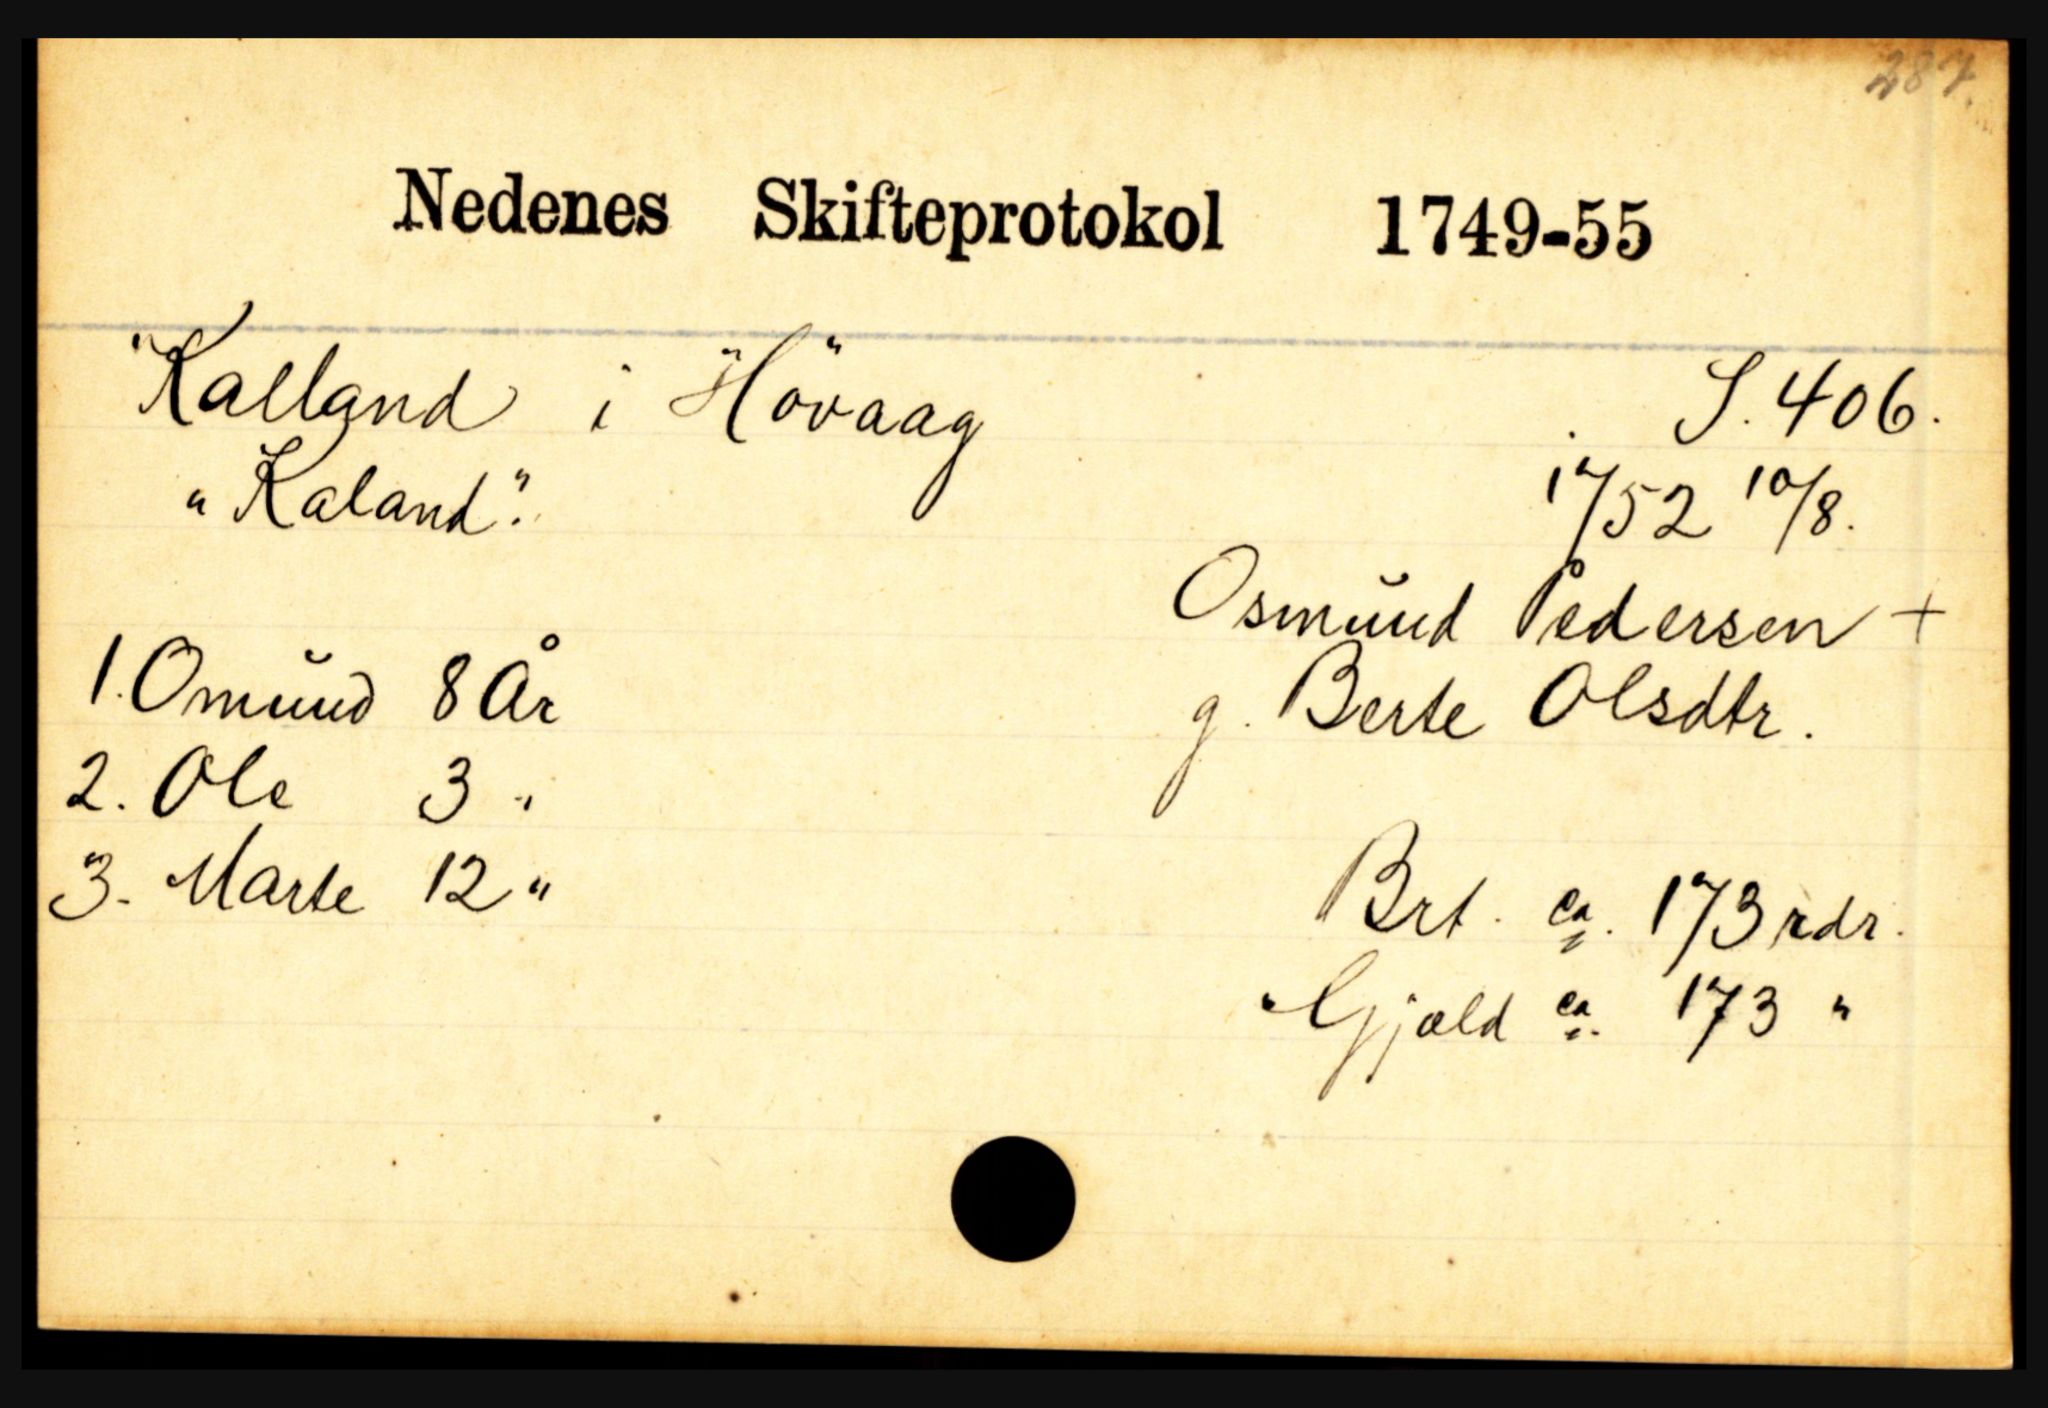 287.
Nedenes Skifteprotokol 1749-55
Kalland i Hövaag S. 406.
"Kaland". 1752 10/8.
Osmund Pedersen +
1. Omund 8 År g. Berte Olsdtr.
2. Ole 3 "
3. Marte 12 " Brt. ca. 173 rdr.
Gjæld ca. 173 "